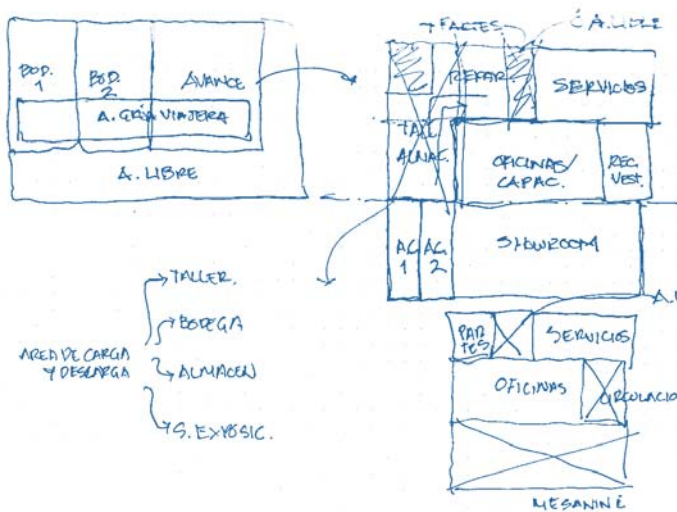 BOD. 1
BOD. 2
AVANCE
A. GRÚA VIAJERA
A. LIBRE
PARTES
REPAR.
SERVICIOS
TALL
ALMAC.
OFICINAS/
CAPAC.
REC.
VEST.
AC. 1
AC. 2
SHOWROOM
AREA DE CARGA
Y DESCARGA
TALLER.
BODEGA
ALMACEN
S. EXPOSIC.
PAR
TES
SERVICIOS
OFICINAS
CIRCULACIO
MESANINE